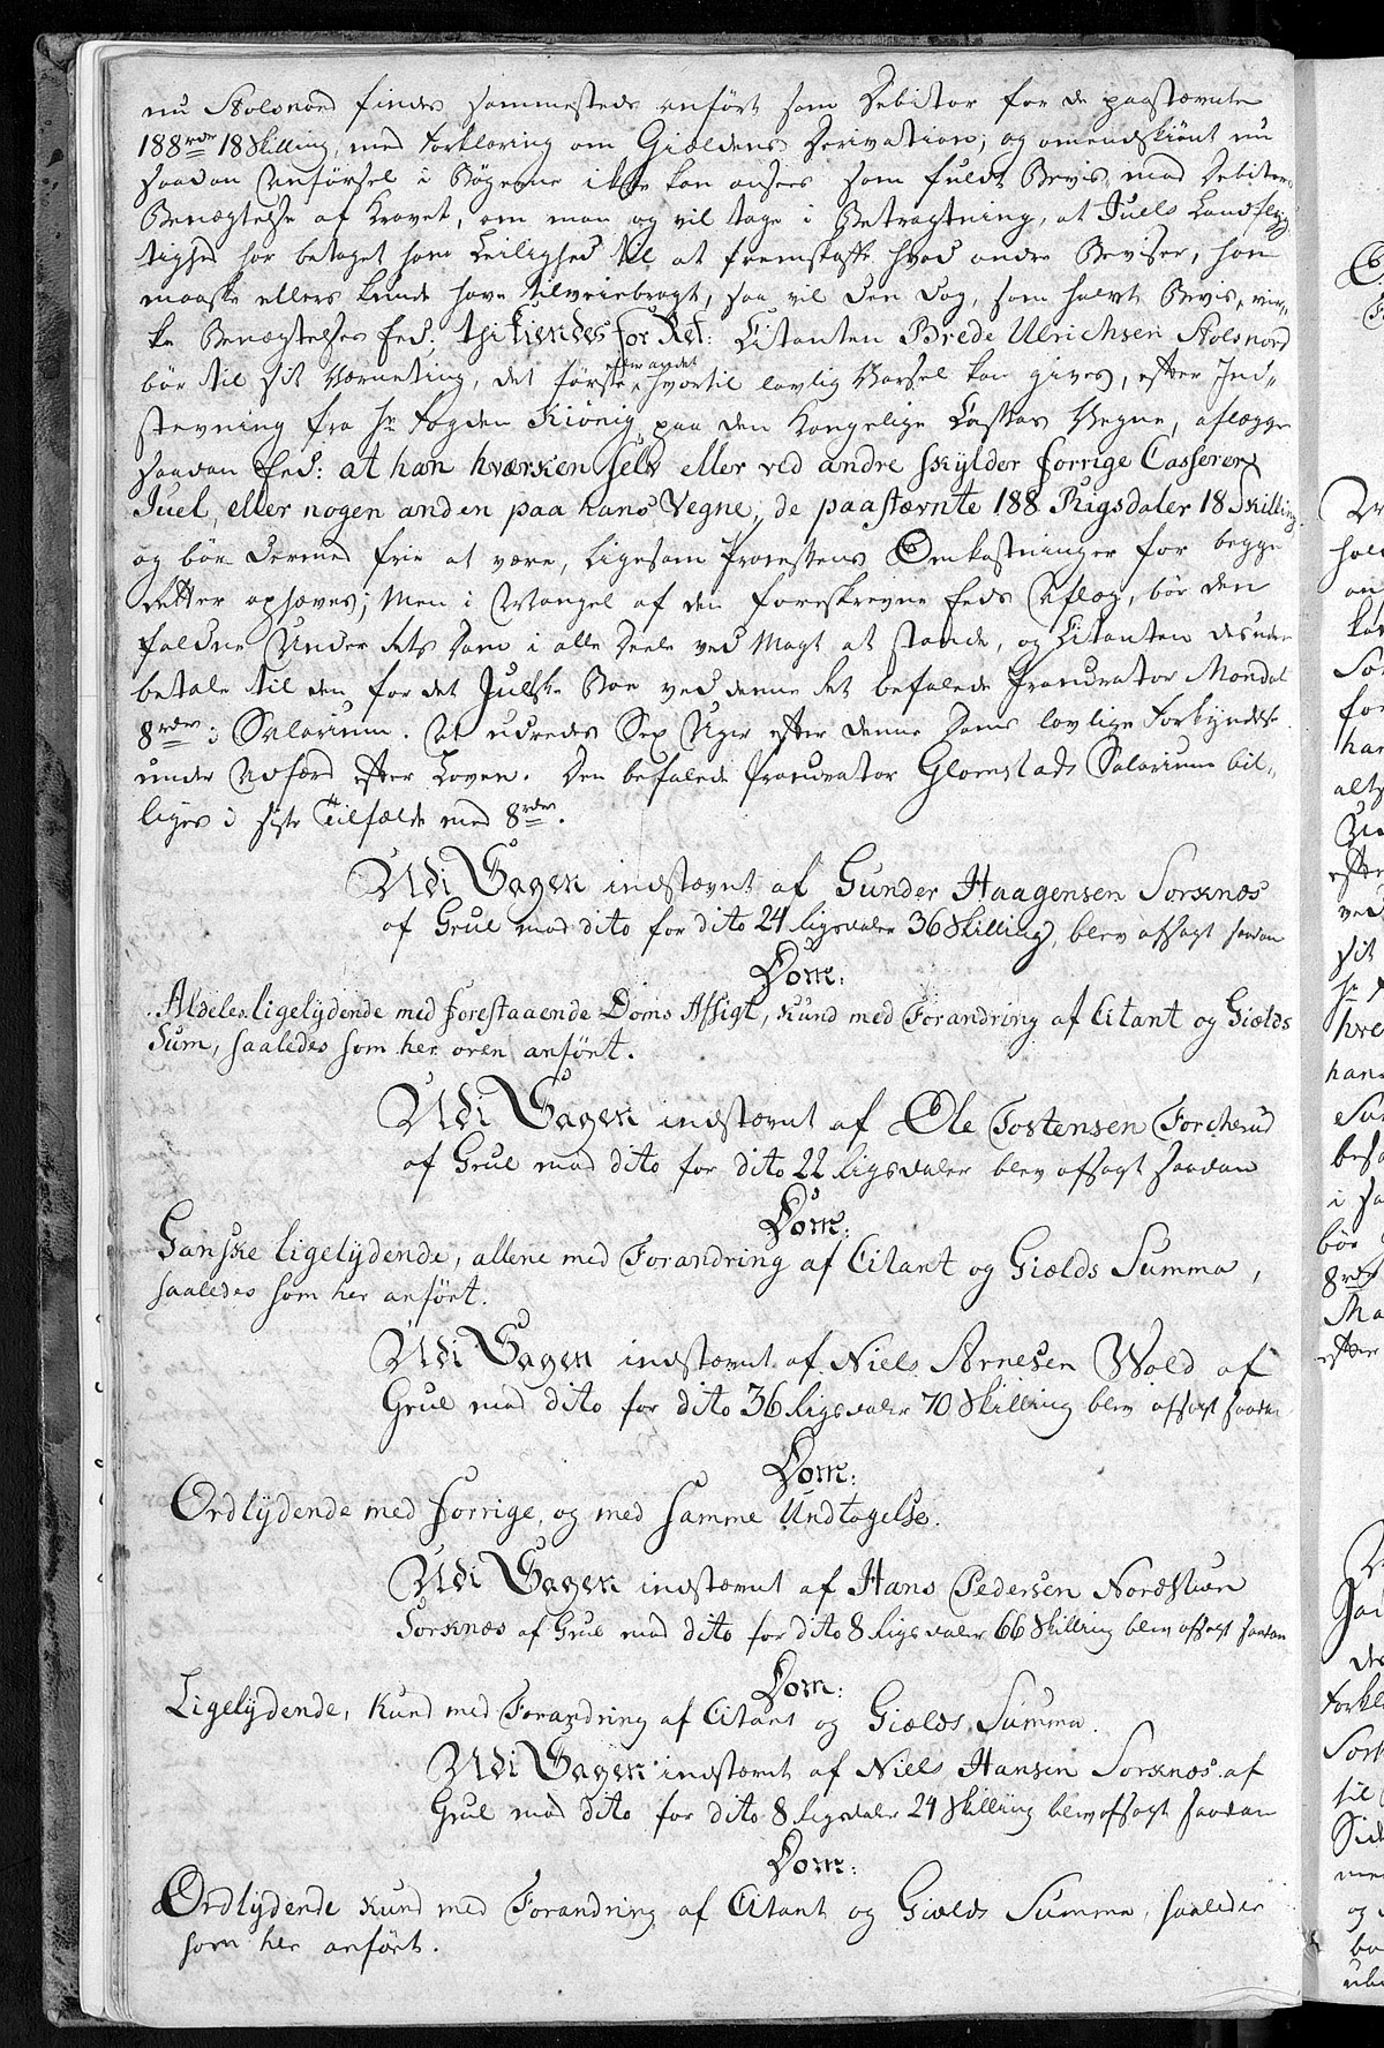 nu Stolsnord findes sammesteds anført som Debitor for de paastævnte
188 rdr 18 Skilling, med Forklaring om Giældens Derivation; og omendskiönt nu
saadan Anförsel i Bøgerne ikke kan ansees som fuldt Bevis mod Debitors
Benægtelse af Kravet, om man og vil tage i Betragtning, at Juels Landflyg-
tighed har betaget ham Leilighed til at fremskaffe hvad andre Beviser, han
maaske ellers kunde have tilveiebragt, saa vil den dog, som halvt Bevis, vir-
ke Benægtelses Eed; thi kiendes for Ret: Citanten Brede Ulrichsen Stolsnord
bör til sit Værneting, det første eller andet hvortil lovlig Varsel kan gives, efter Ind-
stevning fra Hr Fogden Kiönig paa den Kongelige Casses Vegne, aflægge
saadan Eed: at han hværken selv eller ved andre skylder forrige Casserer
Juel, eller nogen anden paa hans Vegne, de paastævnte 188 Rigsdaler 18 Skilling
og bör dermed frie at være, ligesom Processens Omkostninger for begge
Retter ophæves; Men i Mangel af den foreskrevne Eeds Aflæg, bör den
faldne Under Rets Dom i alle Deele ved Magt at stande, og Citanten desuden
betale til den for det Julske Boe ved denne Ret befalede Procurator Mandal
8 rdr i Salarium. At udredes Sex Uger efter denne Doms lovlige Forkyndelse
under Adfærd efter Loven. Den befalede Procurator Glomstads Salarium bil-
liges i siste Tilfælde med 8 rdr.
Udi Sagen indstævnt af Gunder Haagensen Sorknæs
af Grue mod dito for dito 24 Rigsdaler 36 Skilling, blev afsagt saadan
Dom:
Aldeles ligelydende med forestaaende Doms Afsigt, kund med Forandring af Citant og Giælds
Sum, saaledes som her oven anfört.
Udi Sagen indstævnt af Ole Tostensen Forcherud
af Grue mod dito for dito 22 Rigsdaler blev afsagt saadan
Dom:
Ganske ligelydende, allene med Forandring af Citant og Giælds Summa,
saaledes som her anfört.
Udi Sagen indstævnt af Niels Arnesen Wold af
Grue mod dito for dito 36 Rigsdaler 70 Skilling blev afsagt saadan
Dom:
Ordlydende med forrige, og med samme Undtagelse.
Udi Sagen indstævnt af Hans Pedersen Nordstuen
Sorknæs af Grue mod dito for dito 8 Rigsdaler 66 Skilling blev afsagt saadan
Dom:
Ligelydende, kund med Forandring af Citant og Giælds Summa.
Udi Sagen indstævnt af Niels Hansen Sorknæs af
Grue mod dito for dito 8 Rigsdaler 24 Skilling blev afsagt saadan
Dom:
Ordlydende kund med Forandring af Citant og Giælds Summa, saaledes
som her anfört.